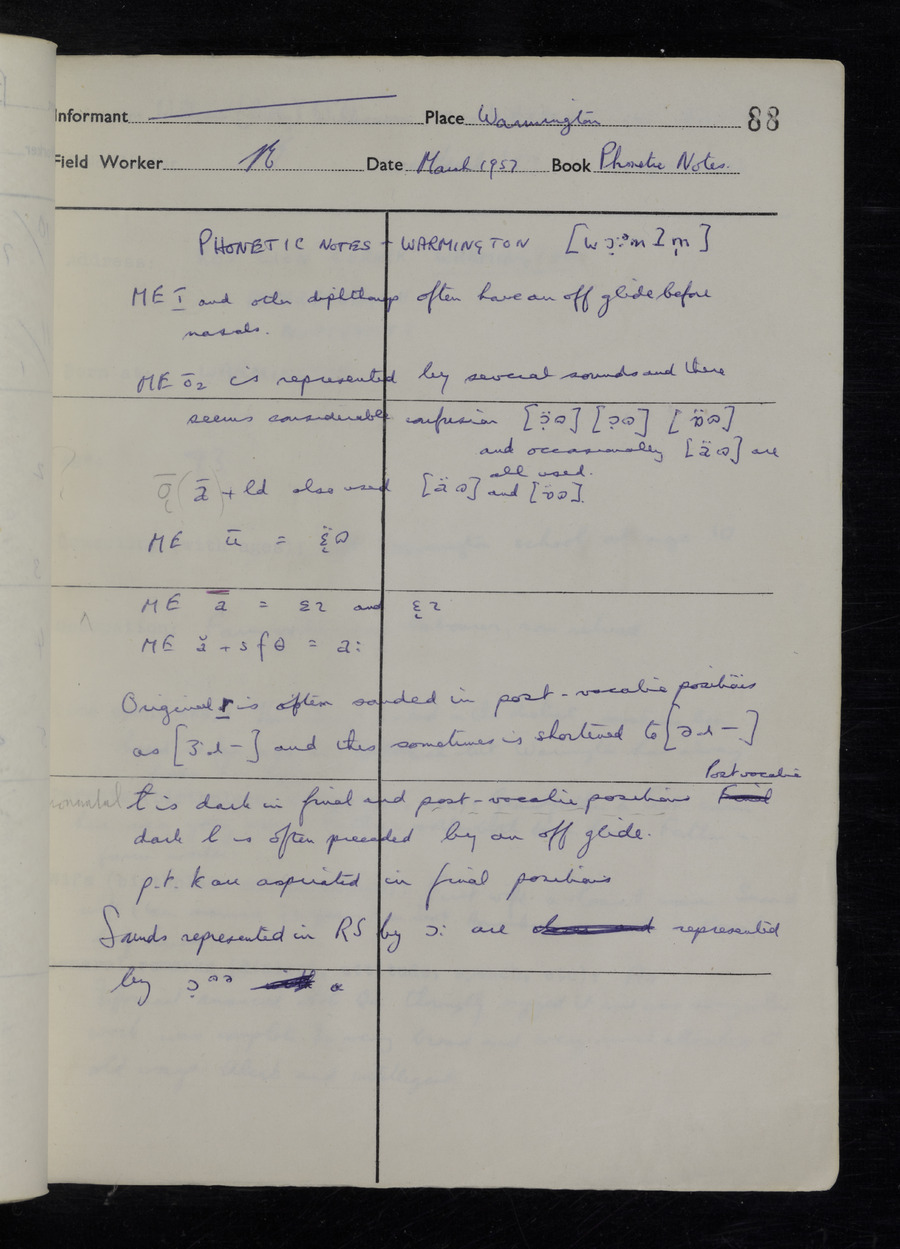 Informant Place Warmington 88
Field Worker Date March 1957 Book Phonetic Notes.
PHONETIC NOTES - WARMINGTON
ME ī and other diphthongs often have an off glide before
nasals.
ME ō₂ is represented by several sounds and there
seems considerable confusion [ɔ̣̈ɷ] [ɔ̣ɷ] [ɒ̈ɷ]
and occasionally [äɷ] are
all used.
ā + ld also used [äɷ] and [ɒ̈ɷ].
ME ū = ɛ̣̈ɷ
ME ā = ɛɪ and ɛ̣ɪ
ME ă + s f θ = a:
Original r is often sounded in post-vocalic positions
as [ɜ·ɹ-] and this sometimes is shortened to [əɹ-]
Postvocalic
ł is dark in final and post-vocalic positions
dark l is often preceded by an off glide.
p.t. k are aspirated in final positions
Sounds represented in RS by ɔ: are represented
by